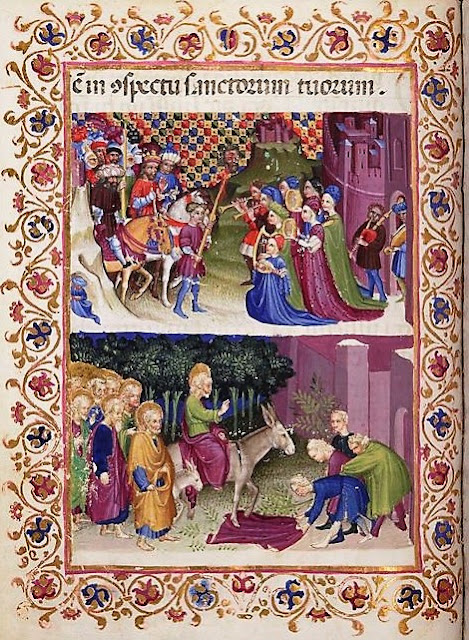 ē in ꝯspectu sanctorum tuorum.